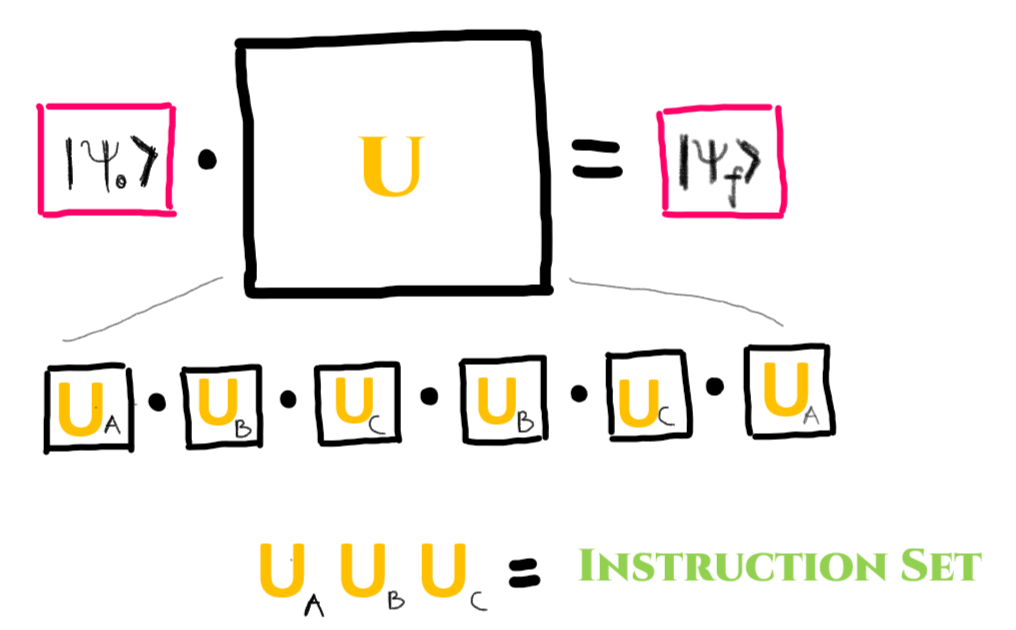 |Ψ₀⟩ • U = |Ψ_f⟩
U_A • U_B • U_C • U_B • U_C • U_A
U_A U_B U_C = INSTRUCTION SET